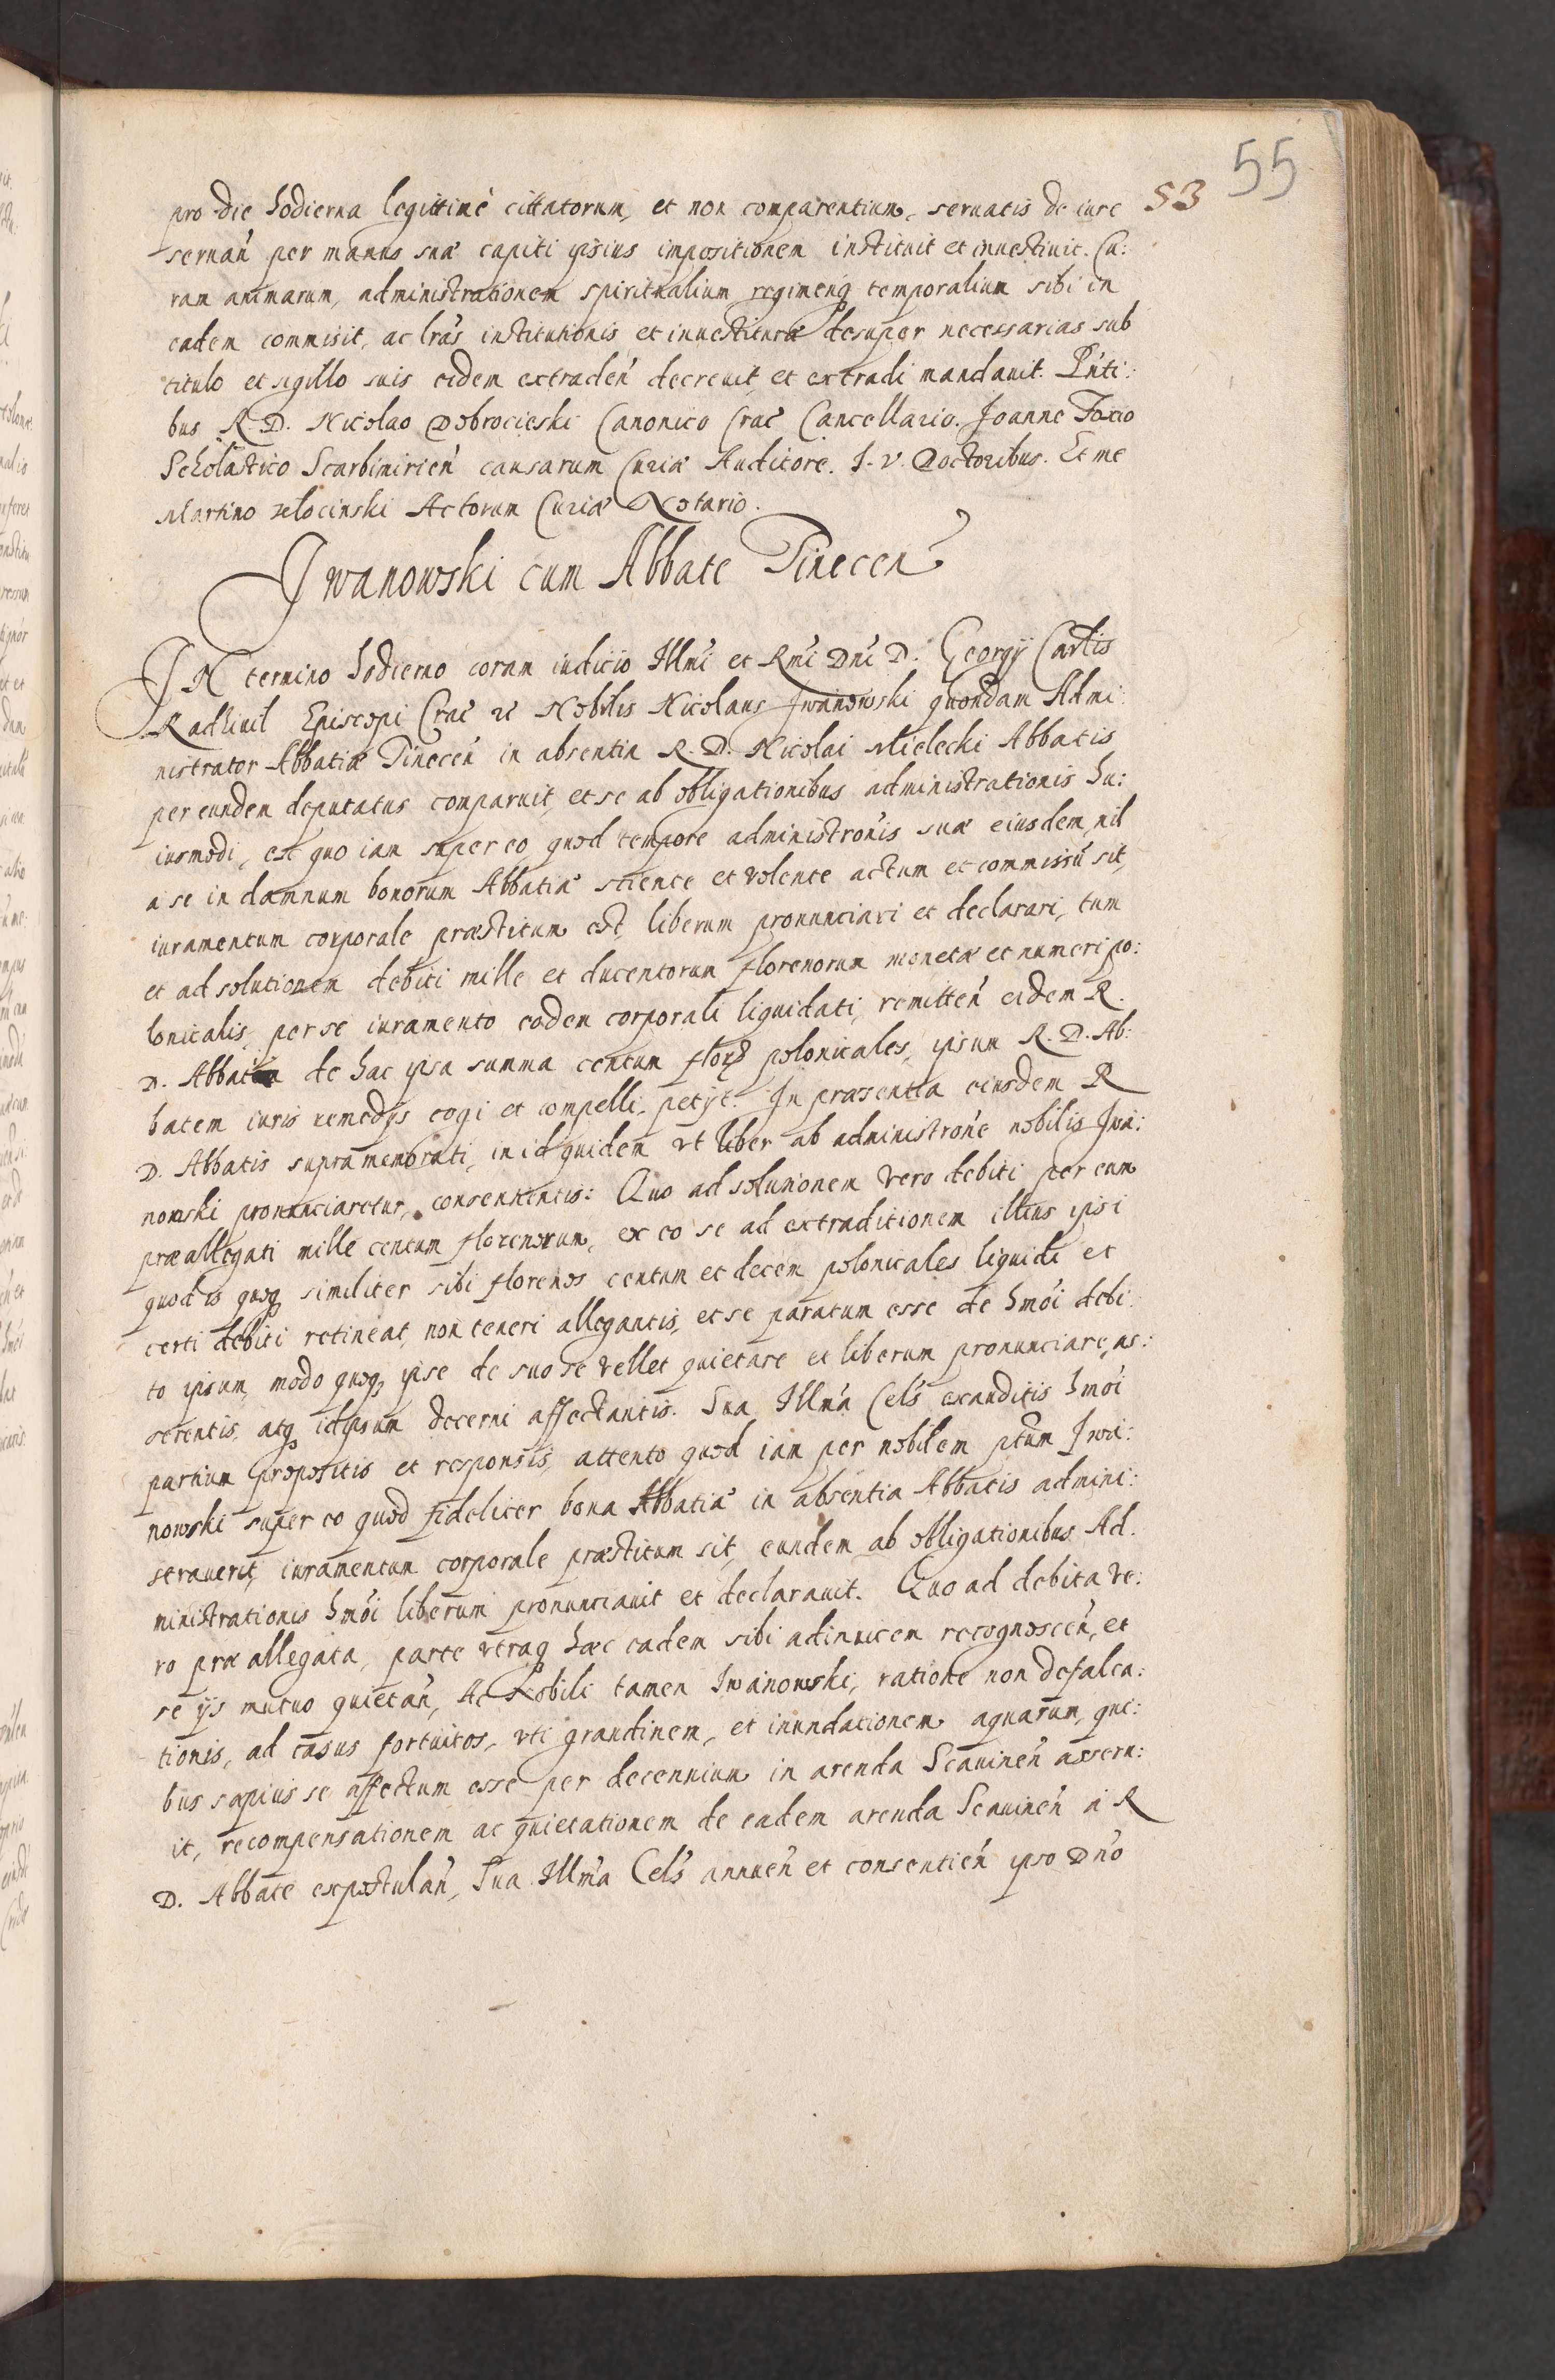 55
53
pro die hodierna legittimé cittatorum, et non comparentium, seruatis de iure
seruań per manus suæ capiti ipsius impositionem instituit et inuestiuit. Cu:
ram animarum, administrationem spiritualium regimenq temporalium sibi in
eadem commisit, ac lrás institutionis et inuestituræ desuper necessarias sub
titulo et sigillo suis eidem extradeń decreuit et extradi mandauit. Pńti:
bus R. D. Nicolao Dobrocieski Canonico Crac̃ Cancellario. Joanne Foxio
Scholastico Scarbimirień causarum Curiæ Auditore. J. V. Doctoribus. Et me
Martino Actorum Curiæ Notario.
Jwanowski cum Abbate Tinecen̄
IN termino hodierno coram iudicio Illmi et Rmi Dni D. Georgÿ Cartis
Radhiuil Episcopi Crac̃ ꝛc̃ Nobilis Nicolaus Jwanowski quondam Admi:
nistrator Abbatiæ Tinecen̄ in absentia R. D. Nicolai Mielecki Abbatis
per eundem deputatus comparuit, et se ab obligationibus administrationis hu:
iusmodi, ex quo iam super eo quod tempore administrońis suæ eiusdem, nil
a se in damnum bonorum Abbatiæ sciente et volente actum et commissũ sit,
iuramentum corporale præstitum est, liberum pronunciari et declarari, tum
et ad solutionem debiti mille et ducentorum florenorum monetæ et numeri po:
lonicalis, per se iuramento eodem corporali liquidati, remitteń eidem R.
D. de hac ipsa summa centum floꝝ polonicales, ipsum R. D. Ab:
batem iuris remedÿs cogi et compelli petÿt. In præsentia eiusdem R
D. Abbatis supra memorati, in id quidem vt liber ab administrońe nobilis Jwa:
nowski pronunciaretur, consentientis: Quo ad solutionem vero debiti per eum
præallegati mille centum florenorum, ex eo se ad extraditionem illius ipsi
quod is quoq similiter sibi florenos centum et decem polonicales liquidi et
certi debiti retineat, non teneri allegantis, et se paratum esse de hmói debi:
to ipsum, modo quoq ipse de suo se vellet quietare et liberum pronunciare, as:
serentis, atq idipsum decerni affectantis. Sua Illma Cels exauditis hmói
partium propositis et responsis, attento quod iam per nobilem ptum Jwa:
nowski super eo quod fideliter bona Abbatiæ in absentia Abbatis admini:
strauerit, iuramentum corporale præstitum sit, eundem ab obligationibus Ad.
ministrationis hmói liberum pronunciauit et declarauit. Quo ad debita ve:
ro præ allegata, parte vtraq hæc eadem sibi adinuicem recognosceń, et
se ijs mutuo quietań, Ac Nobili tamen Jwanowski, ratione non defalca:
tionis, ad casus fortuitos, vti grandinem, et inundationem aquarum, qui:
bus sæpius se affectum esse per decennium in arenda Scauineń asseru:
it, recompensationem ac quietationem de eadem arenda Scauineń a R
D. Abbate expostulań, Sua Illma Cels annueń et consentień ipso Dńo